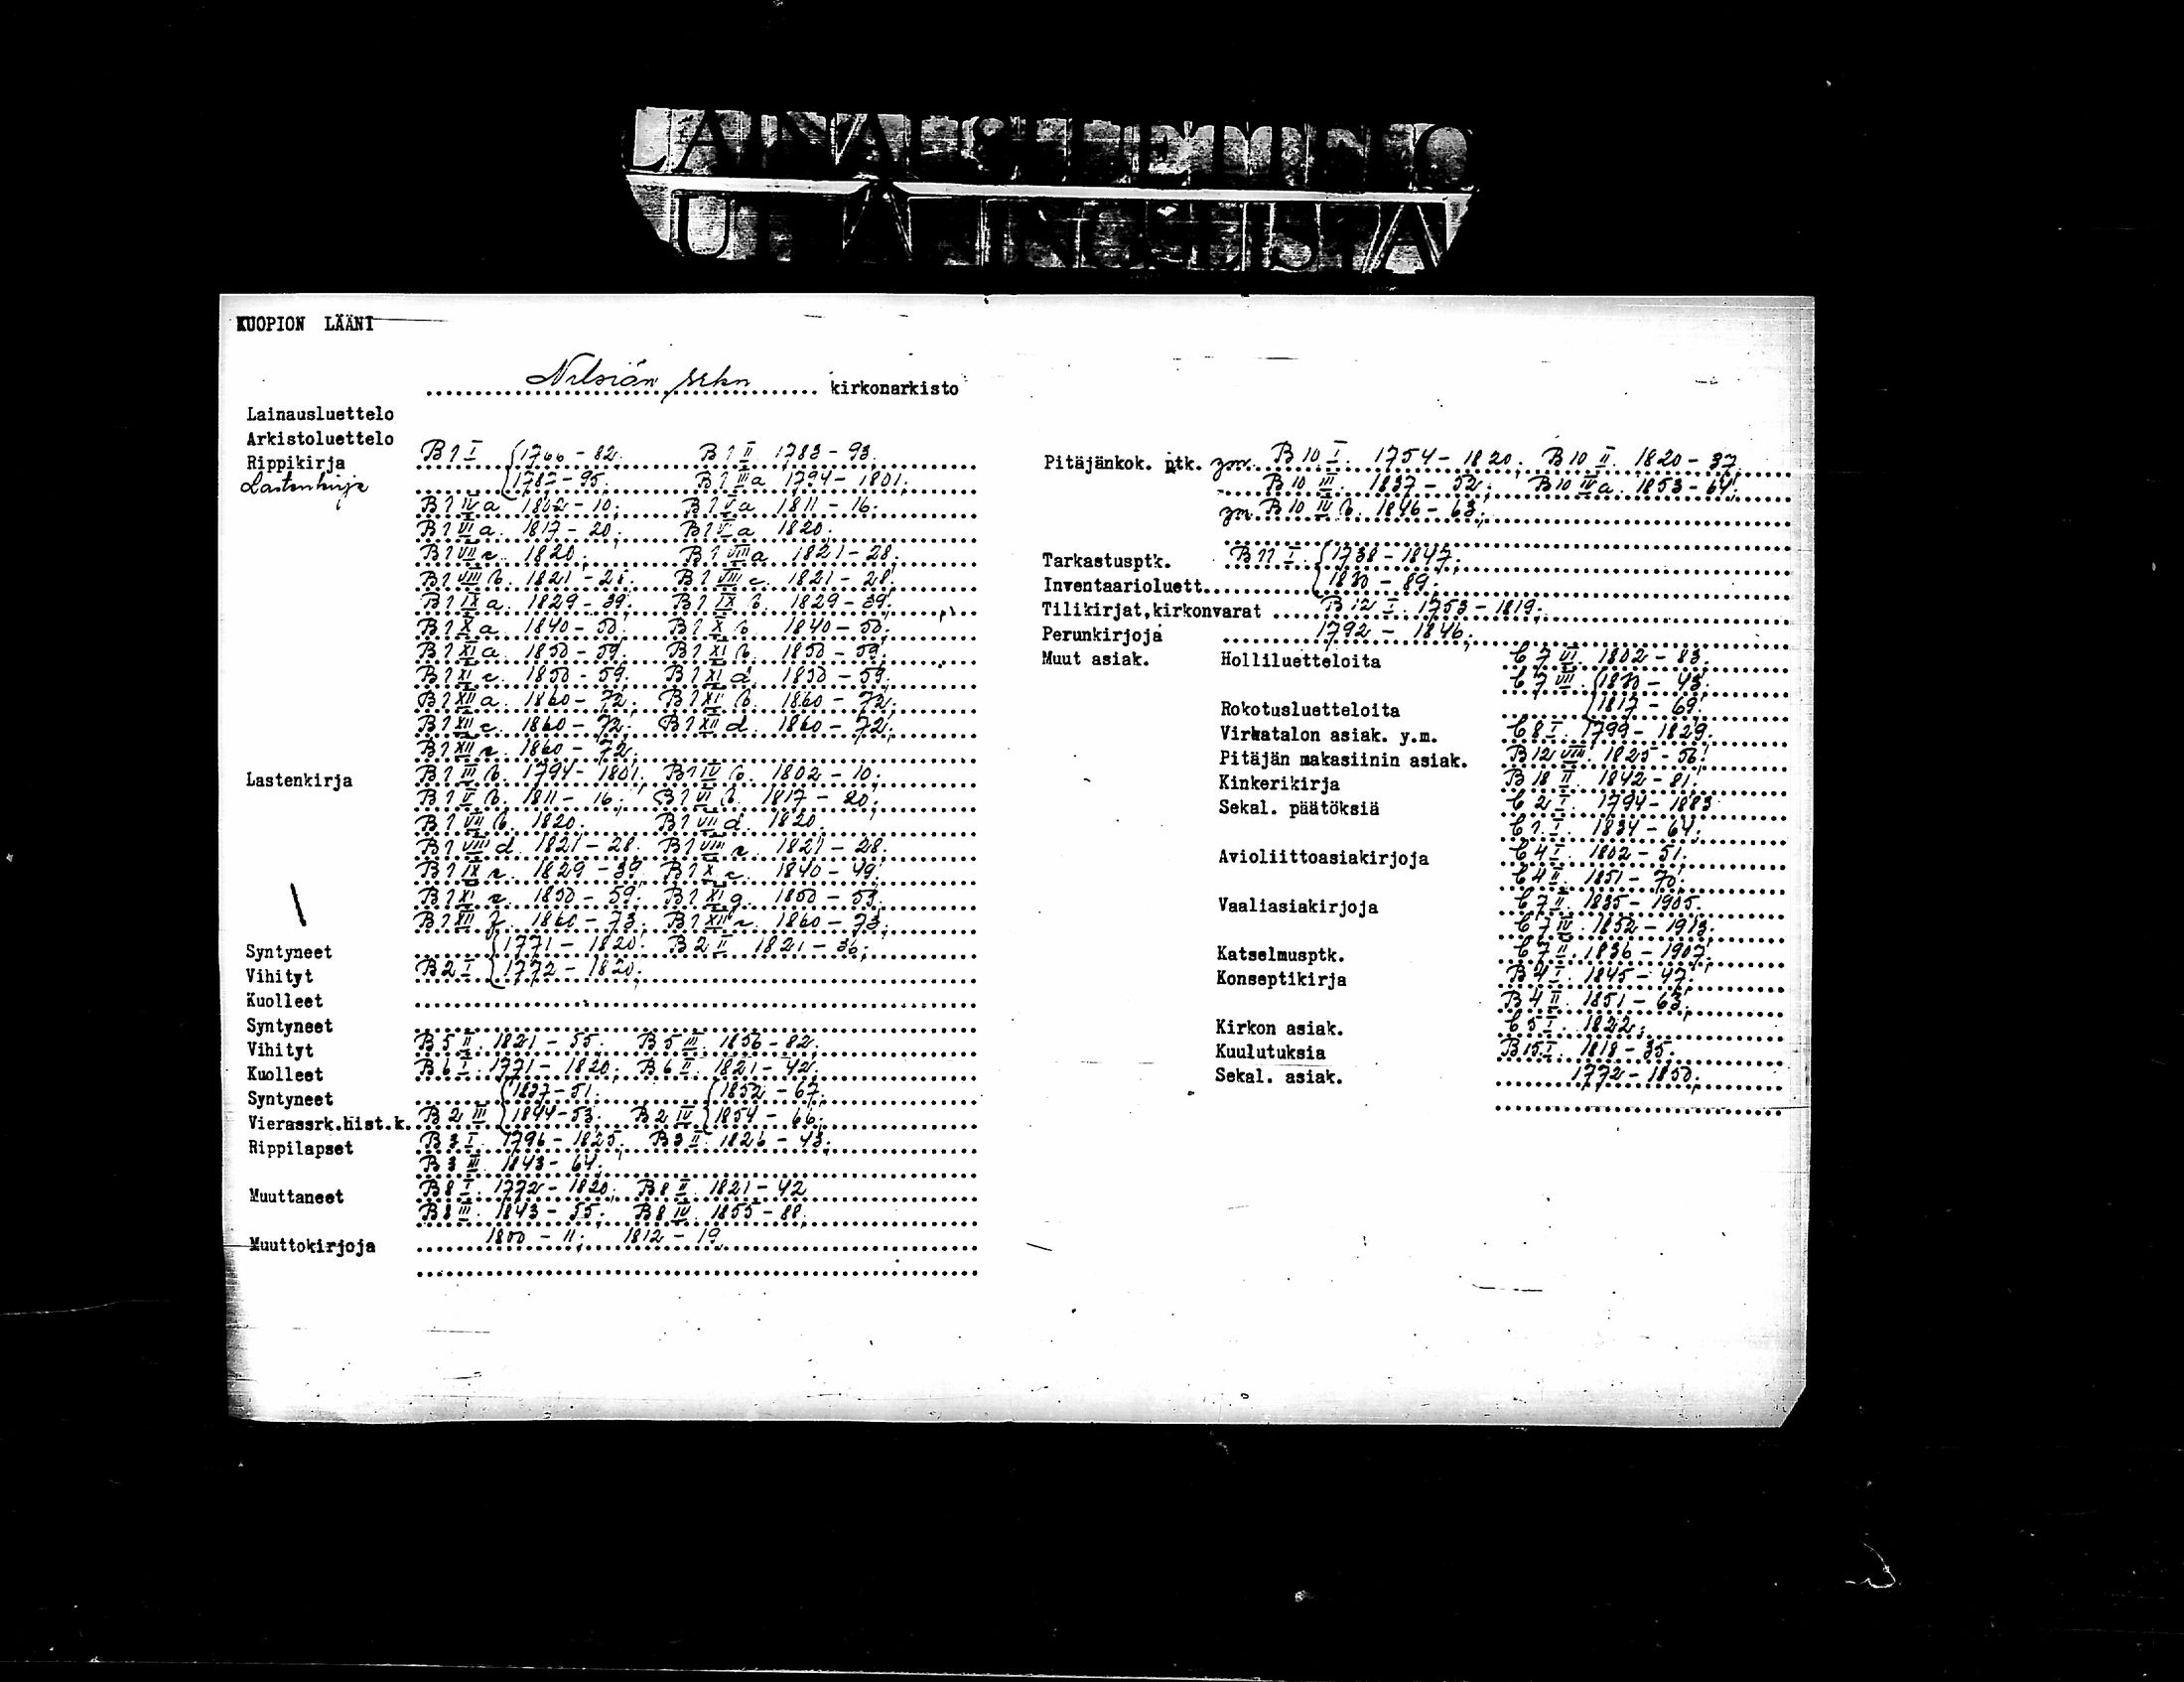 KUOPION LÄÄNI
Nilsiän srkn kirkonarkisto
Lainausluettelo
Arkistoluettelo
Rippikirja B1 I {1766 - 82. B1 II 1783 - 93.
Lastenkirja {1787 - 95. B1 III a 1794 - 1801;
B1 IV a 1802 - 10; B1 V a 1811 - 16;
B1 VI a. 1817 - 20; a 1820;
1820; B1 VIII a 1821 - 28;
B1 VIII b. 1821 - 28. B1 VIII c. 1821 - 28;
B1 IX a. 1829 - 39; B1 IX b. 1829 - 39;
B1 X a. 1840 - 50. B1 X b 1840 - 50;
B1 XI a. 1850 - 59. B1 XI b. 1850 - 59;
B1 XI c. 1850 - 59. B1 XI d. 1850 - 59;
B1 XII a. 1860 - 72; b. 1860 - 72;
B1 XII c. 1860 - 72; B1 XII d. 1860 - 72;
B1 XII e. 1860 - 72.
Lastenkirja B1 III b. 1794 - 1801. B1 IV b. 1802 - 10;
B1 V b. 1811 - 16; B1 VI b. 1817 - 20;
B1 VII b. 1820. B1 VII d. 1820.
B1 VIII d. 1821 - 28. B1 VIII e. 1821 - 28.
B1 IX c. 1829 - 39. B1 X c. 1840 - 49.
B1 XI e. 1850 - 59. B1 XI g. 1850 - 59.
B1 XII f. 1860 - 73; 1860 - 73;
Syntyneet {1771 - 1820. B2 II 1821 - 36;
Vihityt B2 I {1772 - 1820.
Kuolleet
Syntyneet
Vihityt B5 II. 1821 - 55. B5 III. 1856 - 82.
Kuolleet B6 I. 1771 - 1820; B6 II. 1821 - 42.
Syntyneet {1837 - 51. {1852 - 67.
Vierassrk.hist.k. B2 III {1844 - 53. B2 IV {1854 - 66;
Rippilapset B3 I. 1796 - 1825; B3 II. 1826 - 43.
B3 III. 1843 - 64.
Muuttaneet B8 I. 1772 - 1820; B8 II. 1821 - 42
B8 III. 1843 - 55. B8 IV. 1855 - 88.
Muuttokirjoja 1800 - 11; 1812 - 19
Pitäjänkok. ptk. ym. B10 I. 1754 - 1820; B10 II. 1820 - 37
B10 III. 1837 - 52; B10 IV a. 1853 - 64;
ym. B10 IV b. 1846 - 63;
Tarkastusptk. B11 I. {1738 - 1847.
Inventaarioluett. {1830 - 89.
Tilikirjat,kirkonvarat B12 I. 1753 - 1819.
Perunkirjoja 1792 - 1846.
Muut asiak. Holliluetteloita C7 VI. 1802 - 83.
C7 VIII. {1830 - 43.
Rokotusluetteloita {1817 - 69.
Virkatalon asiak. y.m. C8 I. 1799 - 1829.
Pitäjän makasiinin asiak. B12 VIII. 1825 - 56.
Kinkerikirja B18 II. 1842 - 81.
Sekal. päätöksiä C2 I. 1794 - 1883
C1 I. 1834 - 64.
Avioliittoasiakirjoja C4 I. 1802 - 51.
C4 II. 1851 - 70.
Vaaliasiakirjoja C7 II. 1835 - 1905.
C7 IV. 1852 - 1913.
Katselmusptk. C7 II. 1836 - 1907.
Konseptikirja B4 I. 1845 - 47.
B4 II. 1851 - 63.
Kirkon asiak. C5 I. 1822.
Kuulutuksia B15 I. 1818 - 35.
Sekal. asiak. 1772 - 1850.